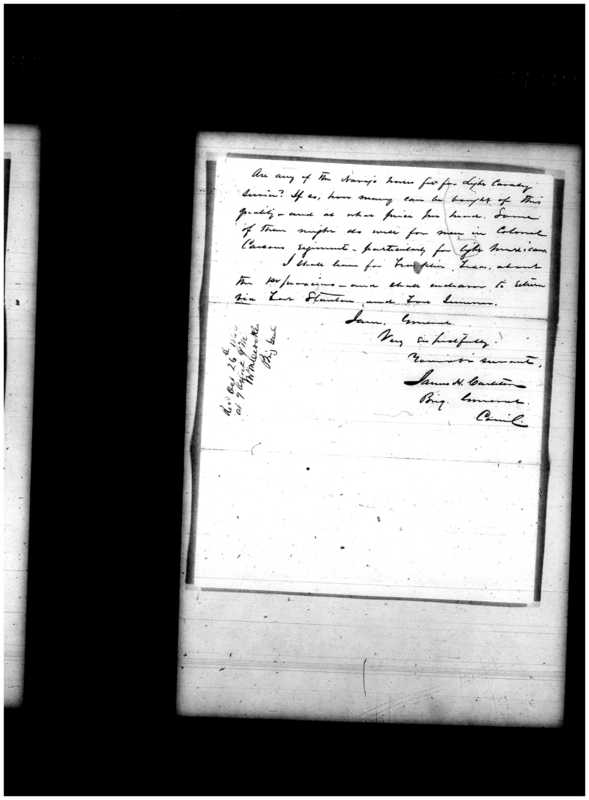 Are any of the Navajo horses fit for Light Cavalry
service? If so, how many can be bought of this
quality – and at what price per head. Some
of them might do well for men in Colonel
Carsons regiment – particularly for light Mexicans
I shall leave for Franklin, Texas, about
the 10th proximo – and shall endeavor to return
via Fort Stanton, and Fort Sumner.
I am, General
Very respectfully,
Your obt servant,
James H. Carleton
Brig. General,
Comd.
Recd Aug 26th
at 7 1/2 P.M.
Brig Genl